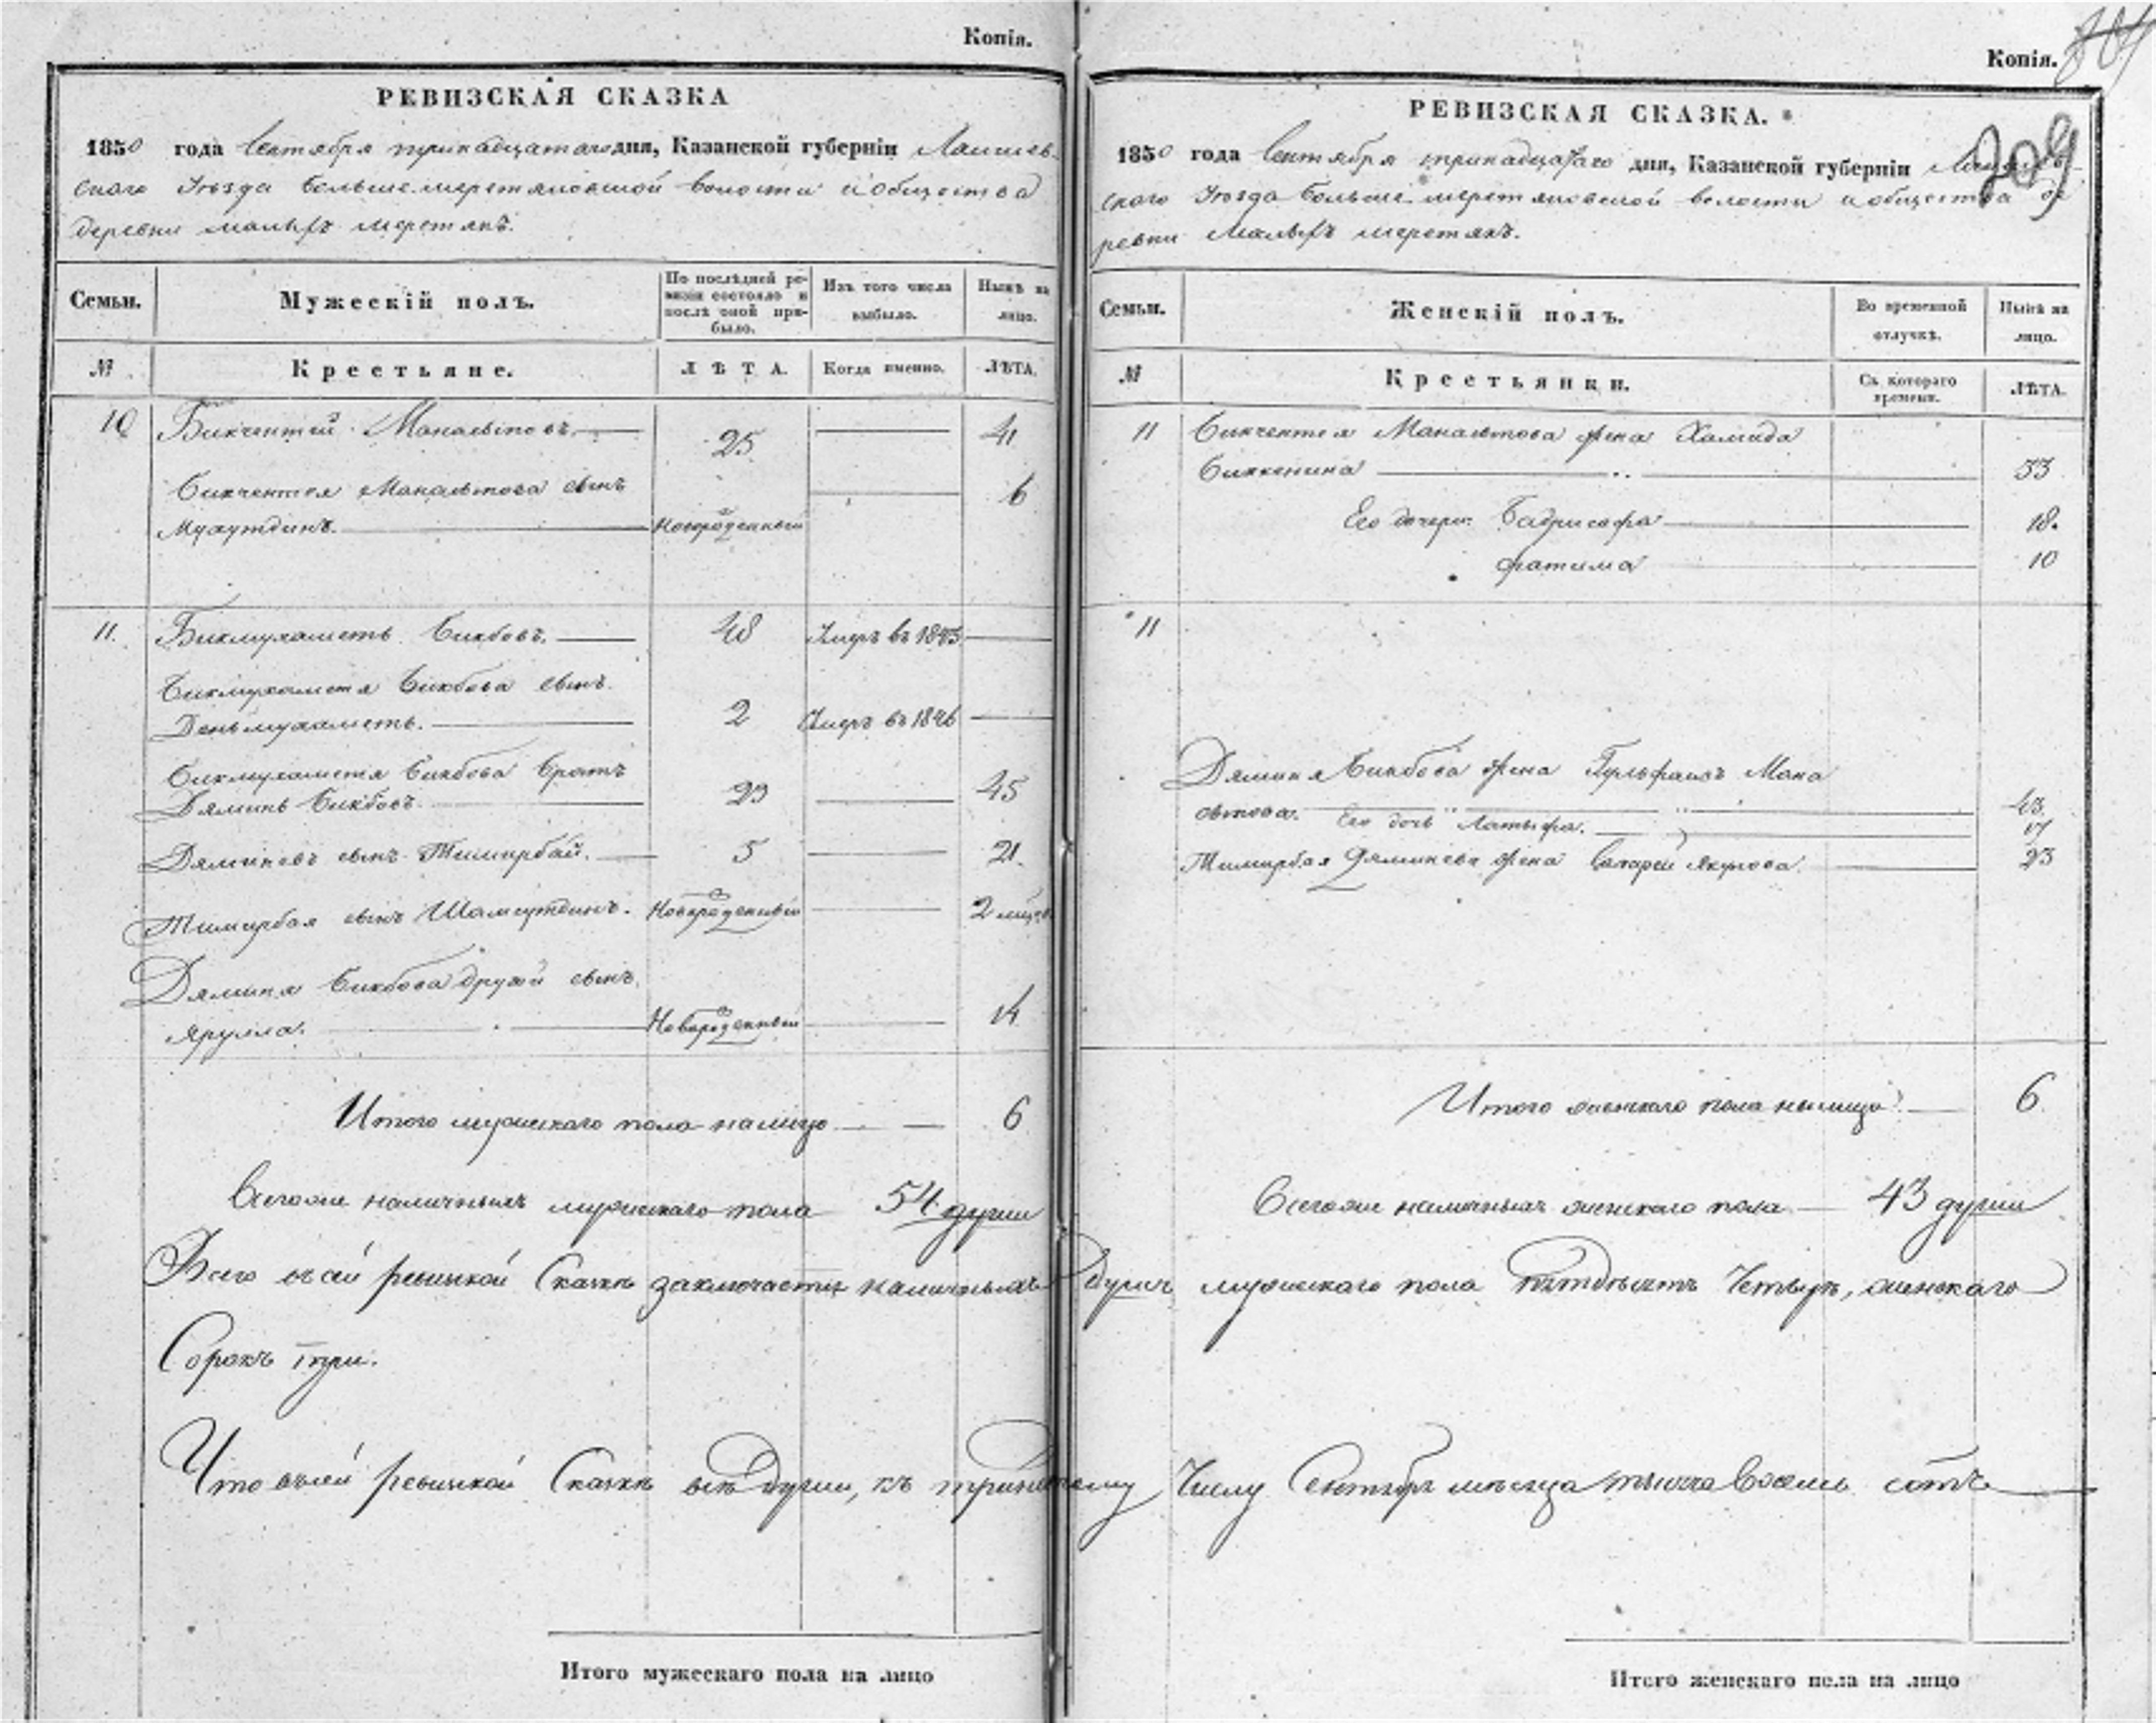 Копія.
РЕВИЗСКАЯ СКАЗКА
1850 года Сентября тринадцатаго дня, Казанской губерніи Лаишев-
скаго Уѣзда Большемеретяковской волости и общества
деревни малыхъ меретякъ.
Семьи.
Мужескій полъ.
По послѣдней ре-
визіи состояло и
послѣ оной при-
было.
Изъ того числа
выбыло.
Нынѣ на
лицо.
№
Крестьяне.
ЛѢТА.
Когда именно.
ЛѢТА.
10 Бикчентей Манаевтовъ. 25 41
Бикчентея Манаевтова сынъ 6
Мухутдинъ. Новорожденный
11. Бикмухаметь Бикбовъ. 48 Умеръ въ 1843
Бикмухаметя Бикбова сынъ
Деньмухаметь. 2 Умеръ въ 1846
Бикмухаметя Бикбова братъ
Дяминь Бикбовъ. 29 45
Дяминевъ сынъ Тимирбай. 5 21.
Тимирбая сынъ Шамсутдинъ. Новорожденный 2 мѣс.
Дяминя Бикбова другой сынъ
Ярулла. Новорожденный 14
Итого мужескаго пола на лицо 6
Всегоже наличныхъ мужескаго пола 54 души
Всего въ сей ревизской Сказкѣ заключается наличныхъ
Сорокъ три.
Что въ сей ревизской Сказкѣ всѣ души, къ
Итого мужескаго пола на лицо
Копія.
209
РЕВИЗСКАЯ СКАЗКА.
1850 года Сентября тринадцатаго дня, Казанской губерніи
скаго Уѣзда Большемеретяковской волости и общества де
ревни Малыхъ меретякъ.
Семьи.
Женскій полъ.
Во временной
отлучкѣ.
Нынѣ на
лицо.
№
Крестьянки.
Съ котораго
времени.
ЛѢТА.
11 Бикчентея Манаевтова жена Хамида
Биккенина 33
Его дочери: Бадрисафа 18.
Фатима 10
11
Дяминя Бикбова жена Гульфаизъ Мана
евтова. 43
Его дочь Латыфа. 17
Тимирбая Дяминева жена Якупова 23
Итого женскаго пола на лицо 6
Всегоже наличныхъ женскаго пола 43 души
душъ мужескаго пола пятдесятъ Четыре, женскаго
Числу Сентября мѣсяца тысяча восемь сотъ
Итого женскаго пола на лицо